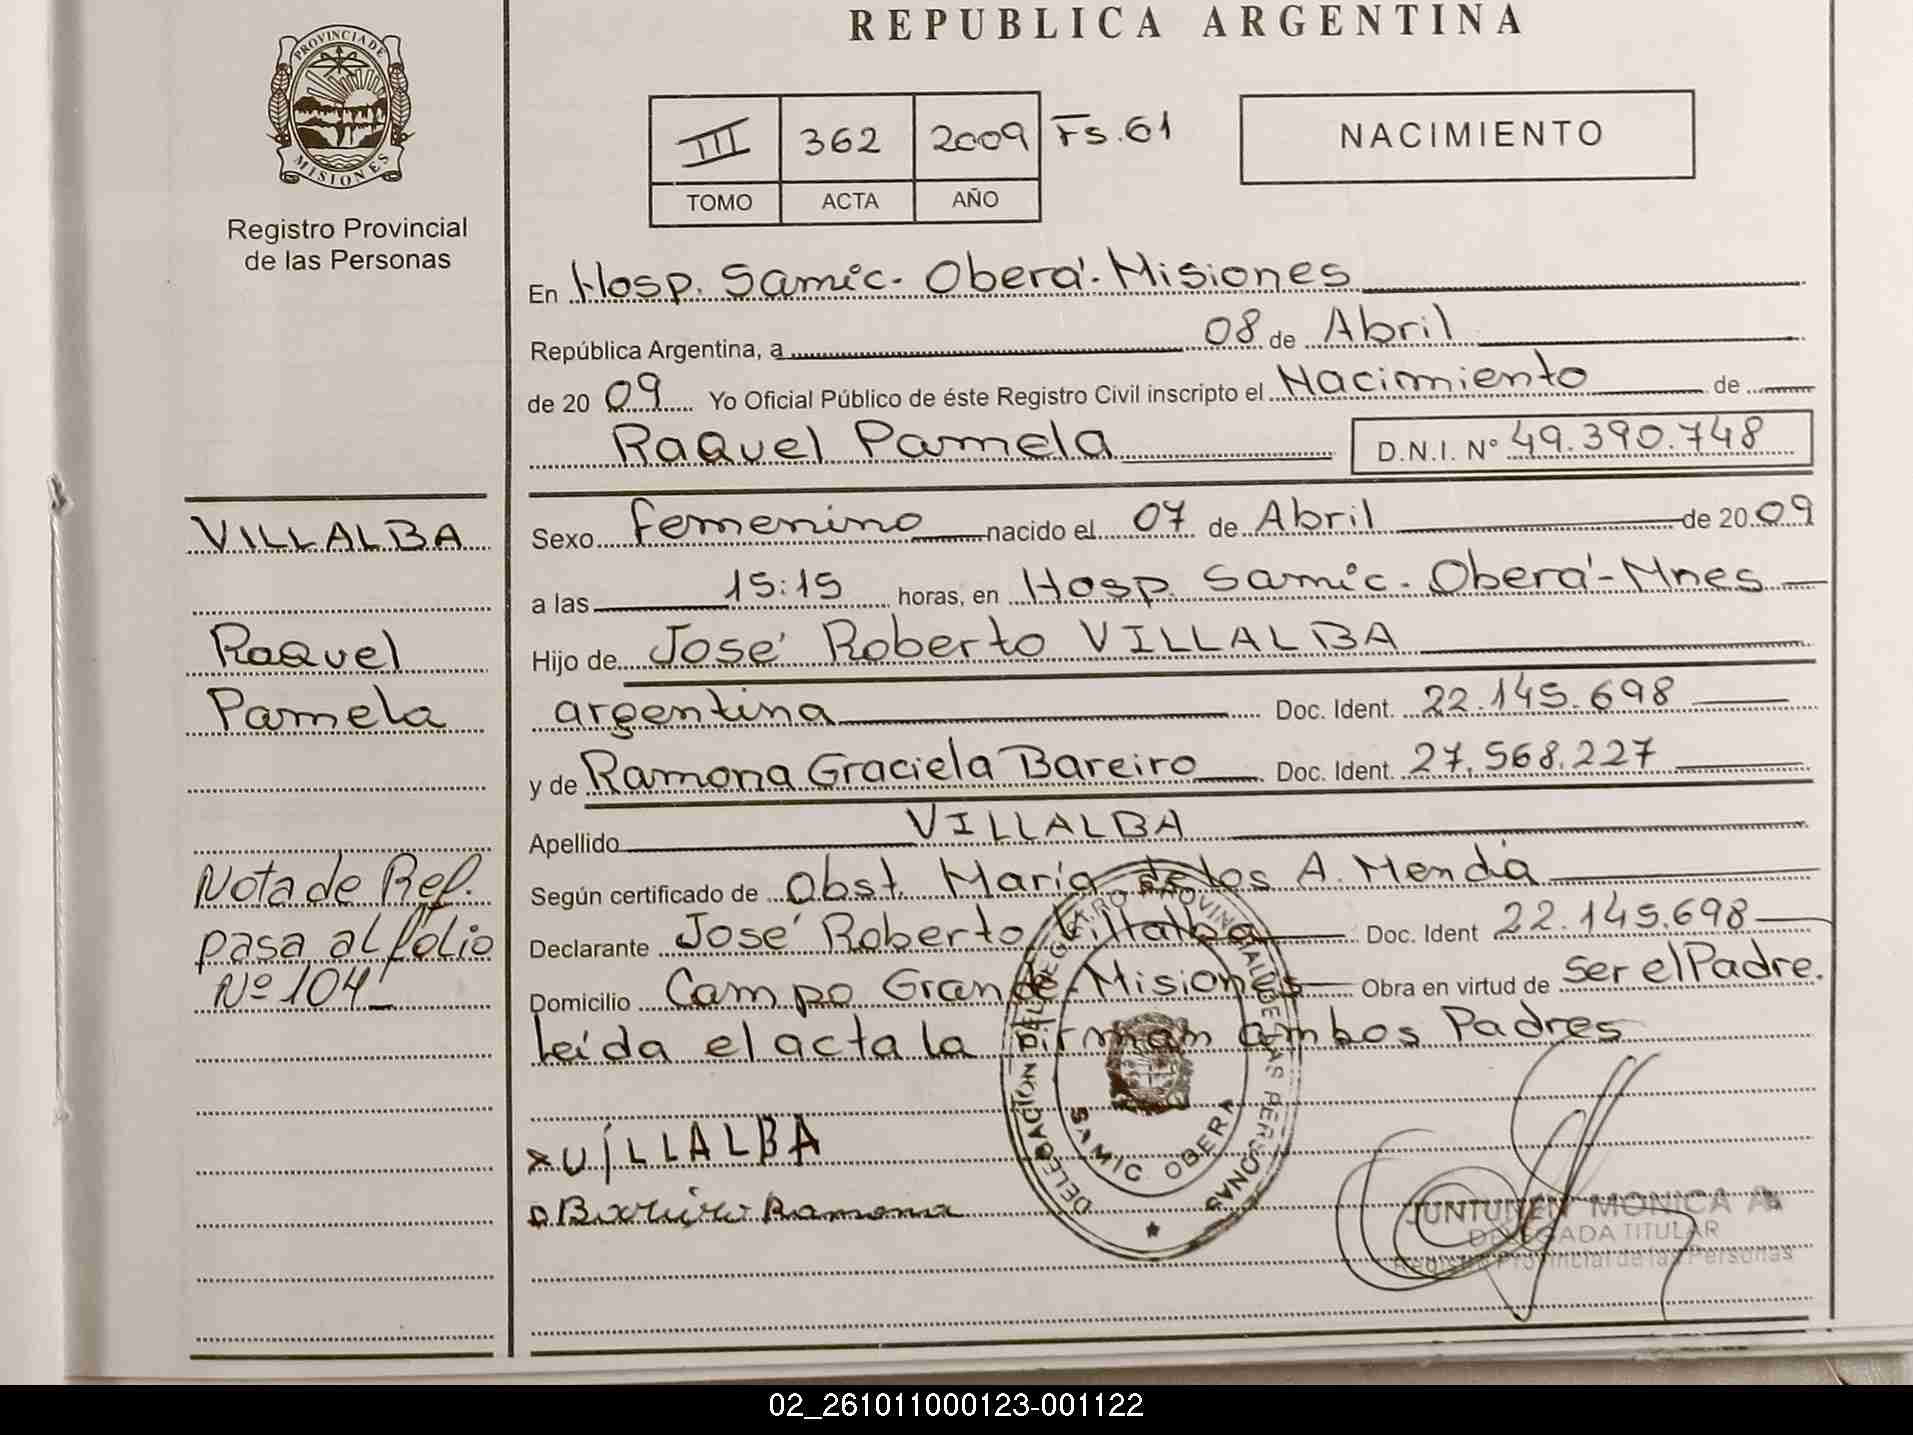 REPUBLICA ARGENTINA
PROVINCIA DE
MISIONES
Registro Provincial
de las Personas
III 362 2009 Fs.61
TOMO ACTA AÑO
NACIMIENTO
En Hosp. Samic. Oberá.-Misiones
República Argentina, a 08 de Abril
de 20 09 Yo Oficial Público de éste Registro Civil inscripto el Nacimiento de
Raquel Pamela D.N.I. Nº 49.390.748
VILLALBA
Raquel
Pamela
Nota de Ref.
pasa al folio
Nº 104
Sexo femenino nacido el 07 de Abril de 20 09
a las 15:15 horas, en Hosp. Samic. Oberá-Mnes
Hijo de José Roberto VILLALBA
argentina Doc. Ident. 22.145.698
y de Ramona Graciela Bareiro Doc. Ident. 27.568.227
Apellido VILLALBA
Según certificado de Obst. María de los A. Mendia
Declarante José Roberto Villalba Doc. Ident 22.145.698
Domicilio Campo Grande-Misiones Obra en virtud de ser el Padre.
leída el acta la firman ambos Padres
x VILLALBA
Bareiro Ramona
DELEGACIÓN DEL REGISTRO PROVINCIAL DE LAS PERSONAS
SAMIC OBERA
JUNTUNEN MONICA A.
DELEGADA TITULAR
Registro Provincial de las Personas
02_261011000123-001122